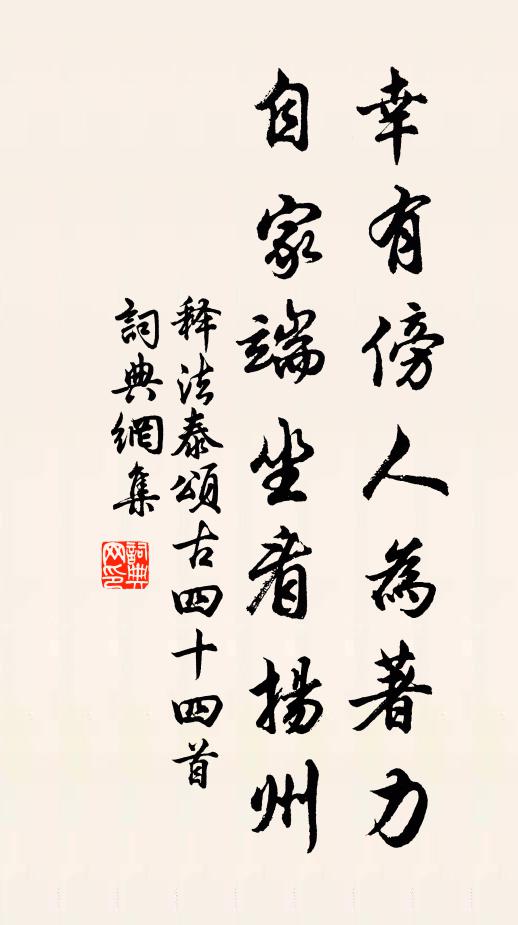 幸有傍人為著力
自家端坐看揚州
释法泰頌古四十四首
詞典網集
詞典网印